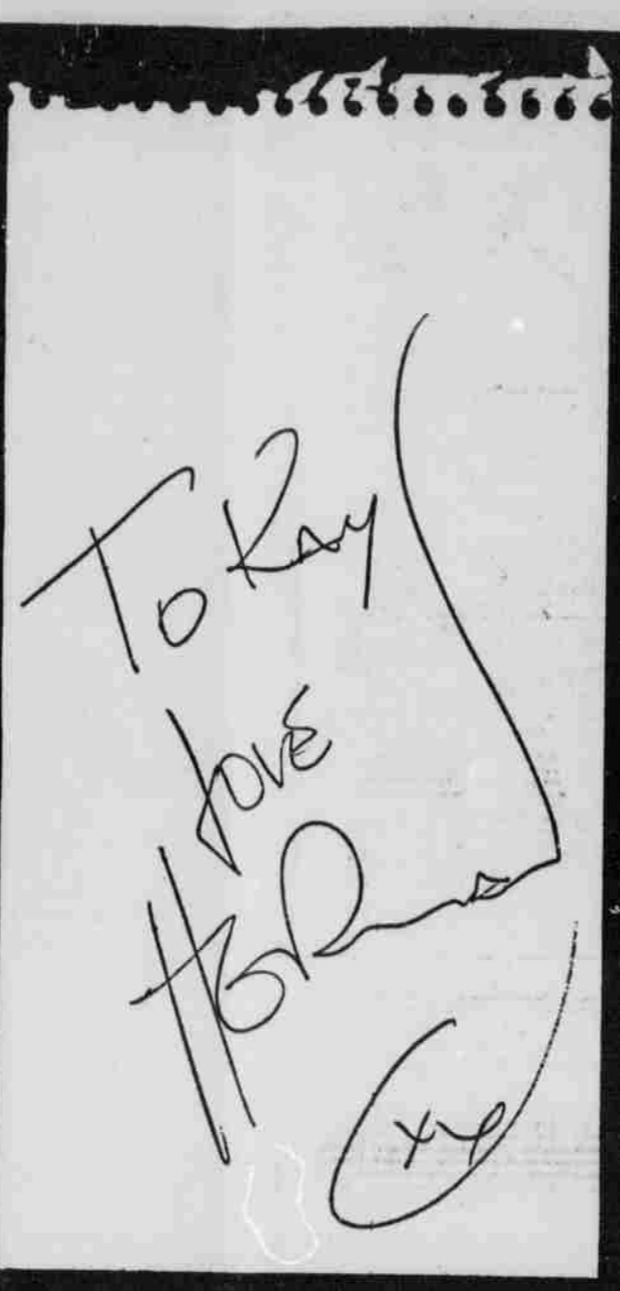 To Ray
love
xx